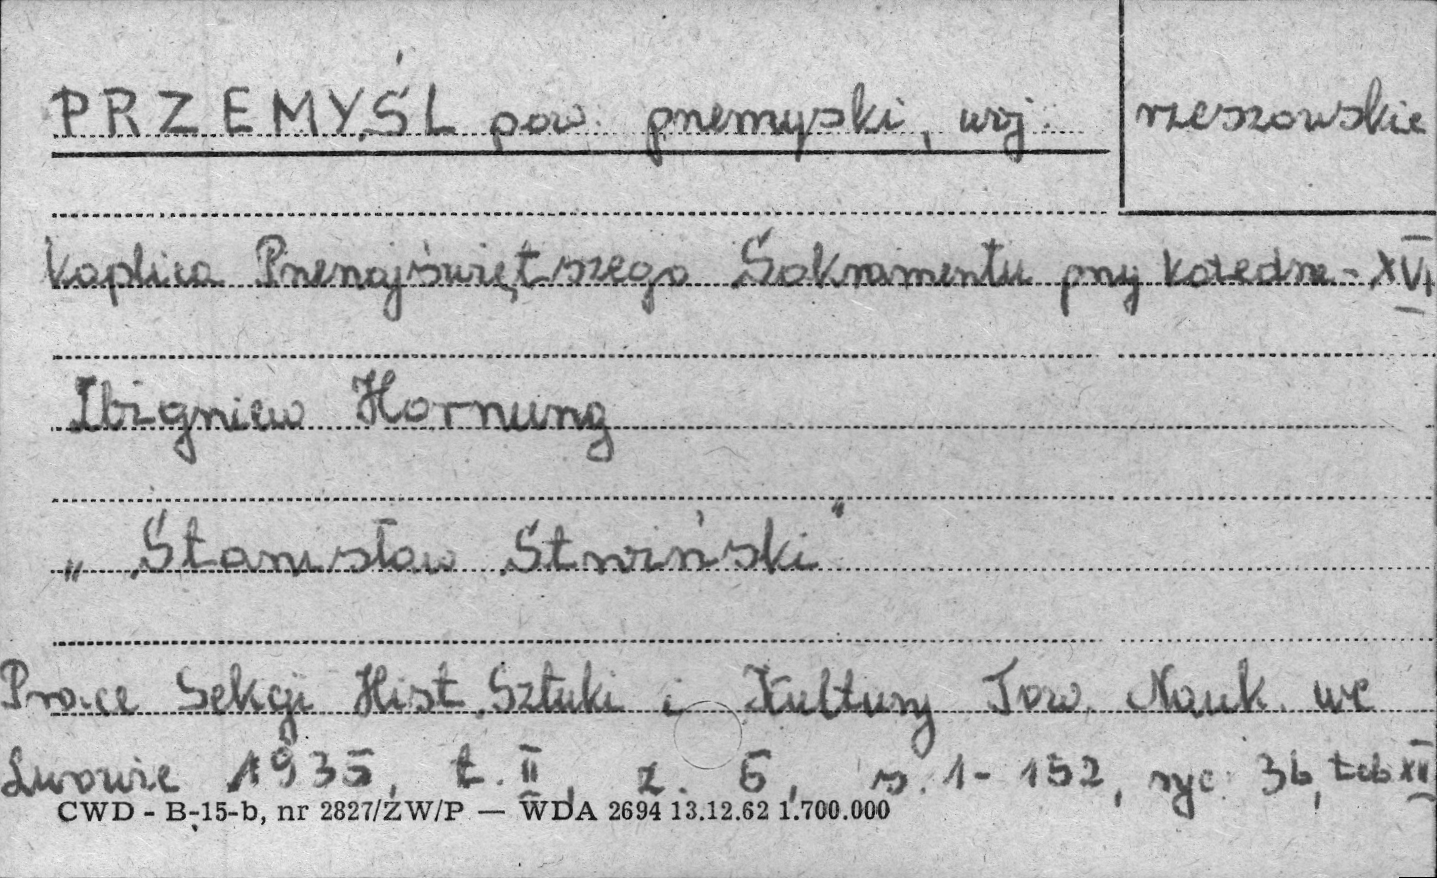 PRZEMYŚL pow. przemyski, woj. rzeszowskie
Kaplica Przenajświętszego Sakramentu przy katedrze - XVI
Zbigniew Hornung
„Stanisław Stroiński"
Prace Sekcji Hist. Sztuki i Kultury Tow. Nauk. we
Lwowie 1935, t. II, z. 5, s. 1-152, ryc. 36, tab XII
CWD - B-15-b, nr 2827/ZW/P — WDA 2694 13.12.62 1.700.000